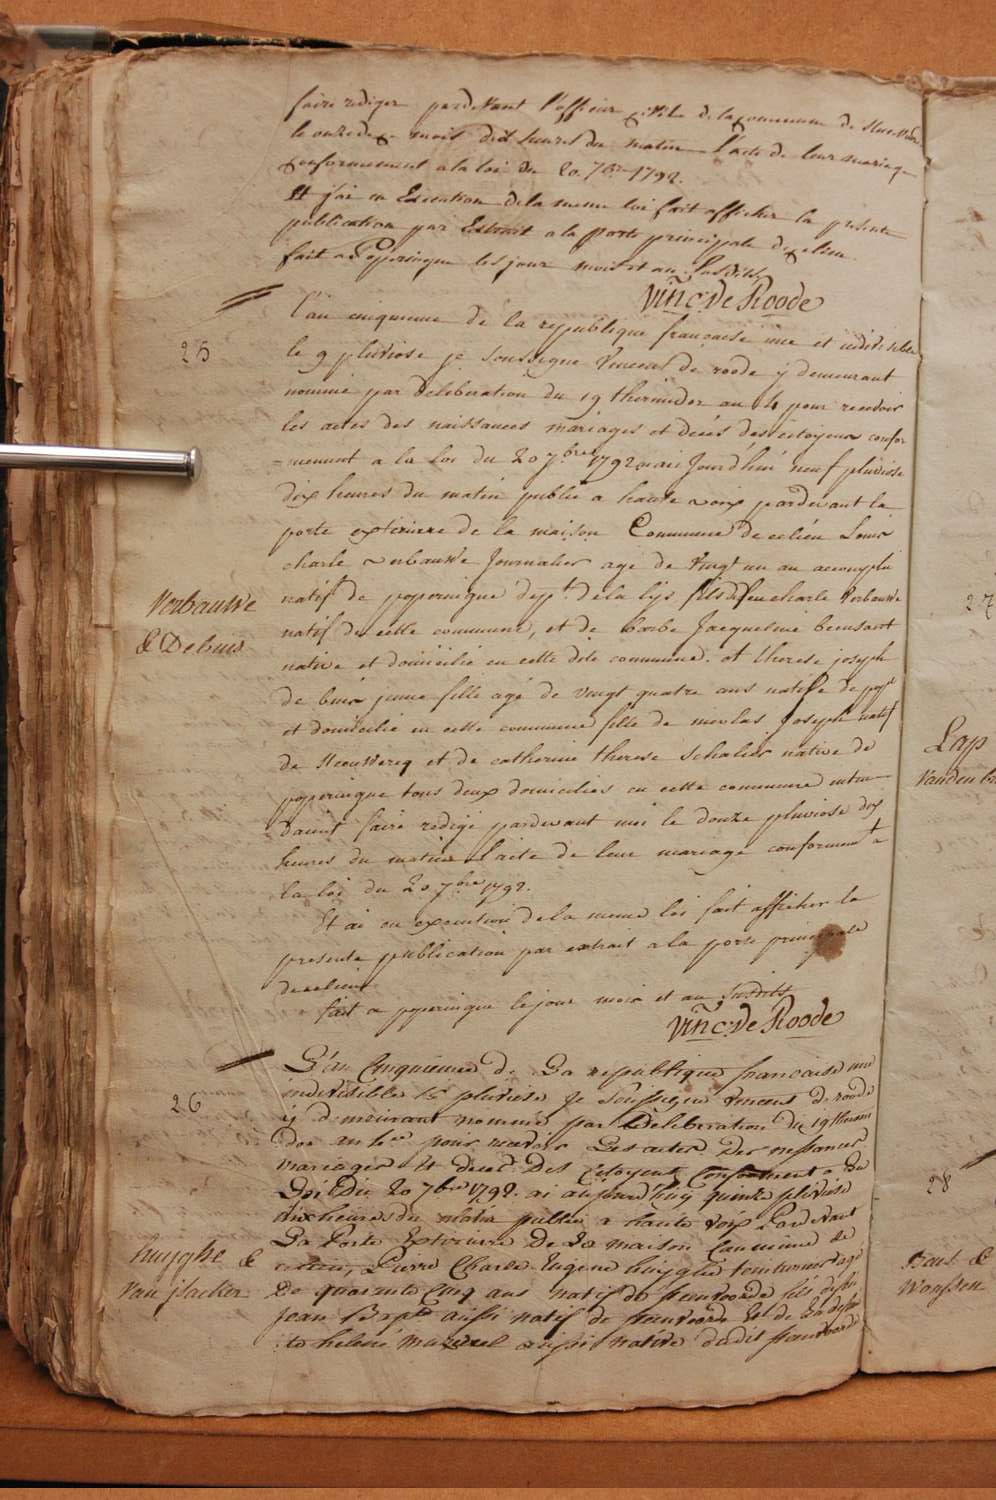 faire rediger pardevant l'officier civile de la commune de
le onze de ce mois dix heures du matin l'acte de leur mariage
conformement a la loi du 20. 7bre 1792.
Et j'ai en Execution de la meme loi fait afficher la presente
publication par Extrait a la porte principale de ce lieu
fait a Poperingue les jour mois et an susdits
Vinc: De Roode
25
l'an cinquieme de la republique française une et indivisible
le 9 pluviose je soussigne Vincent de roode y demeurant
nommé par deliberation du 19 thermidor an 4 pour recevoir
les actes des naissances mariages et décés des citoyens confor
=mement a la loi du 20 7.bre 1792 ai Jourd'hui neuf pluviose
dix heures du matin publié a haute voix pardevant la
porte exterieure de la maison Commune de ce lieu Louis
charle verbauwe Journalier agé de Vingt un an accompli
natif de poperingue dept. de la lijs fils de feu charle Verbauwe
natif de cette commune, et de barbe Jacqueline
native et domiciliée en cette dite commune. et therese joseph
de buus jeune fille agé de vingt quatre ans native de
et domiciliée en cette commune fille de nicolas Joseph natif
de et de catherine therese native de
poperingue tous deux domiciliés en cette commune enten
=daient faire redigé pardevant moi le douze pluviose dix
heures du matin l'acte de leur mariage conformemt a
la loi du 20 7.bre 1792.
Et ai en execution de la meme loi fait afficher la
presente publication par extrait a la porte principale
de ce lieu
fait a poperingue le jour mois et an susdits
Vinc: De Roode
Verbauwe
& Debuus
26
L'an Cinquieme de La republique francaise une
indivisible le pluviose Je soussigne Vincent De roode
ij demeurant nommé par Deliberation du 19 thermi
dor an 4 pour recevoir Les actes Des nessances
mariages Et deces Des Citoyens Conforment a La
Loi Du 20 7bre 1792. ai aujourd'huy quinze pluviose
dix heures du matin publié a haute voix Pardevant
La Porte Exterieure De La maison Commune de
ce lieu, Pierre Charle Eugene huijghe agé
De quarante Cinq ans natif de fils de
Jean Bapte aussi natif de Et de
helene aussi native dudit
huyghe &
Van isacker
27
Lap
Vanden
28
&
Woussen